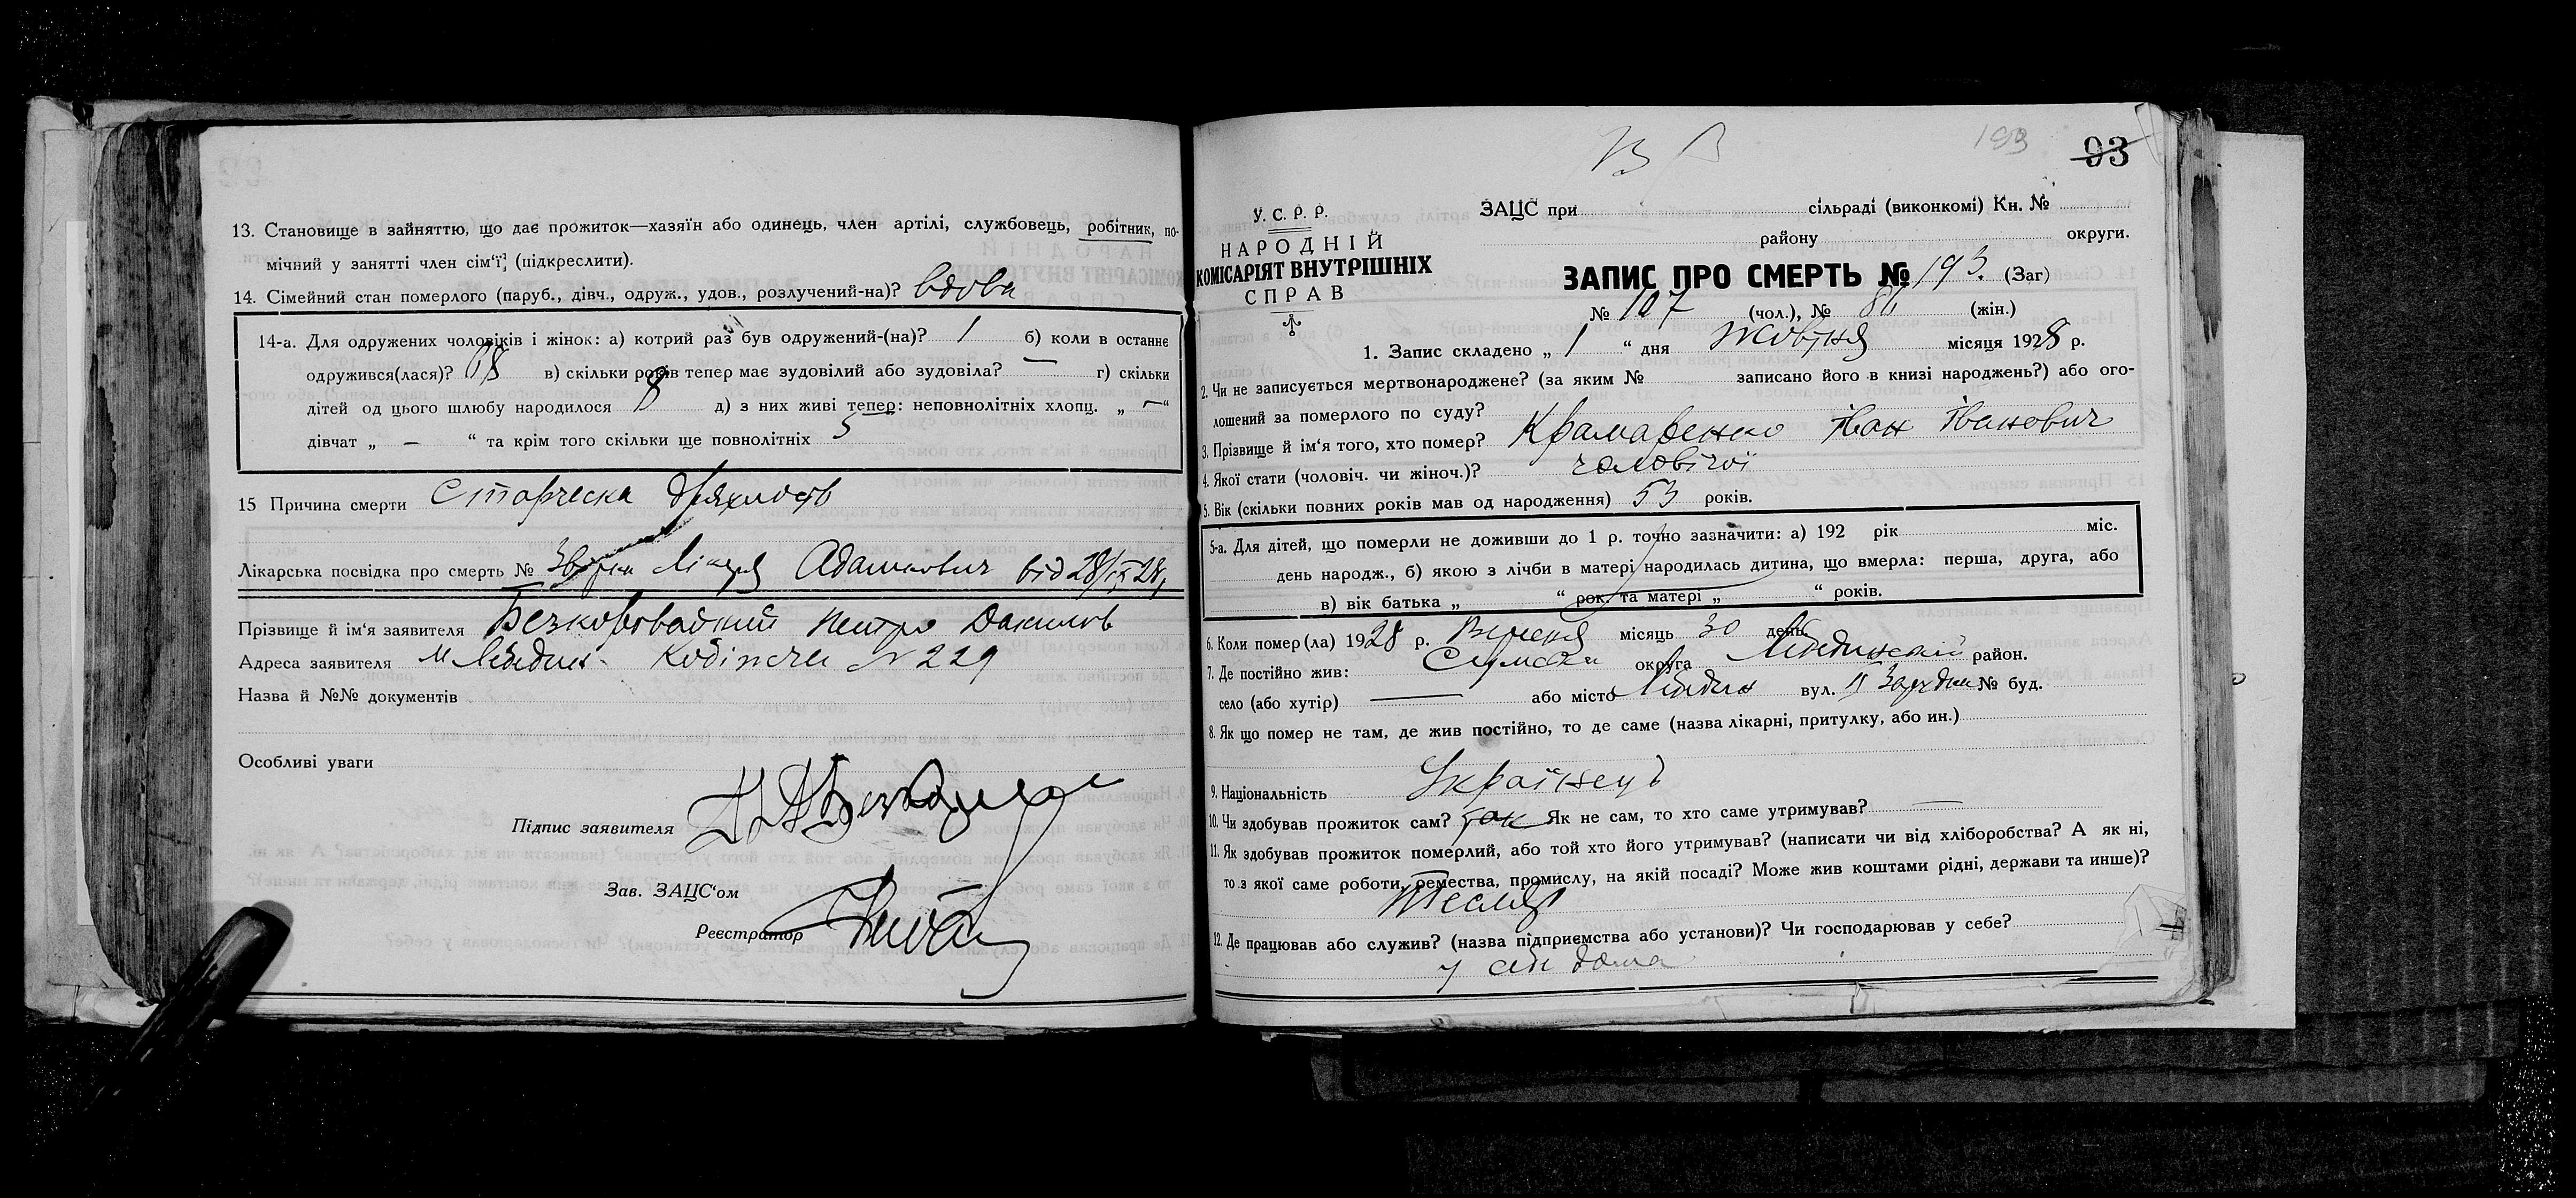 13. Становище в зайняттю, що дає прожиток—хазяїн або одинець, член артілі, службовець, робітник, по-
мічний у занятті член сім'ї, (підкреслити).
14. Сімейний стан померлого (паруб., дівч., одруж., удов., розлучений-на)? вдова
14-а. Для одружених чоловіків і жінок: а) котрий раз був одружений-(на)? 1 б) коли в останнє
одружився(лася)? 68 в) скільки років тепер має зудовілий або зудовіла? — г) скільки
дітей од цього шлюбу народилося 8 д) з них живі тепер: неповнолітніх хлопц. „ — “
дівчат „ — “ та крім того скільки ще повнолітніх 5
15 Причина смерти Старческа дряхлость
Лікарська посвідка про смерть № Лікаря Адамович від 28/IX 28,
Прізвище й ім'я заявителя Безкоровайний Петро Данилов
Адреса заявителя м Лебедин. №229
Назва й №№ документів
Особливі уваги
Підпис заявителя
Зав. ЗАЦС'ом
Реєстратор
193
93
У. С. Р. Р.
НАРОДНІЙ
КОМІСАРІЯТ ВНУТРІШНІХ
СПРАВ
ЗАЦС при сільраді (виконкомі) Кн. №
району округи.
ЗАПИС ПРО СМЕРТЬ № 193. (Заг)
№ 107 (чол.), № 86 (жін.)
1. Запис складено „ 1 “ дня Жовтня місяця 1928 р.
2. Чи не записується мертвонароджене? (за яким № записано його в книзі народжень?) або ого-
лошений за померлого по суду?
3. Прізвище й ім'я того, хто помер? Крамаренко Іван Іванович
4. Якої стати (чоловіч. чи жіноч.)? чоловічої
5. Вік (скільки повних років мав од народження) 53 років.
5-а. Для дітей, що померли не доживши до 1 р. точно зазначити: а) 192 рік міс.
день народж., б) якою з лічби в матері народилась дитина, що вмерла: перша, друга, або
в) вік батька „ “ рок, та матері „ “ років.
6. Коли помер(ла) 1928 р. Вересня місяць 30 день
7. Де постійно жив: Сумська округа Лебединський район.
село (або хутір) — або місто Лебедин вул. № буд.
8. Як що помер не там, де жив постійно, то де саме (назва лікарні, притулку, або ин.)
9. Національність Українець
10. Чи здобував прожиток сам? так Як не сам, то хто саме утримував? —
11. Як здобував прожиток померлий, або той хто його утримував? (написати чи від хліборобства? А як ні,
то з якої саме роботи, ремества, промислу, на якій посаді? Може жив коштами рідні, держави та инше)?
Тесляр
12. Де працював або служив? (назва підприємства або установи)? Чи господарював у себе?
у себе дома